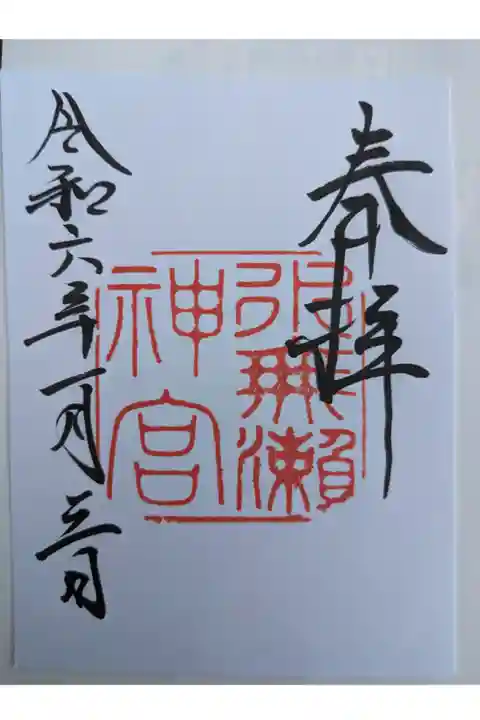 奉拝
水無瀬
神宮
令和六年一月三日